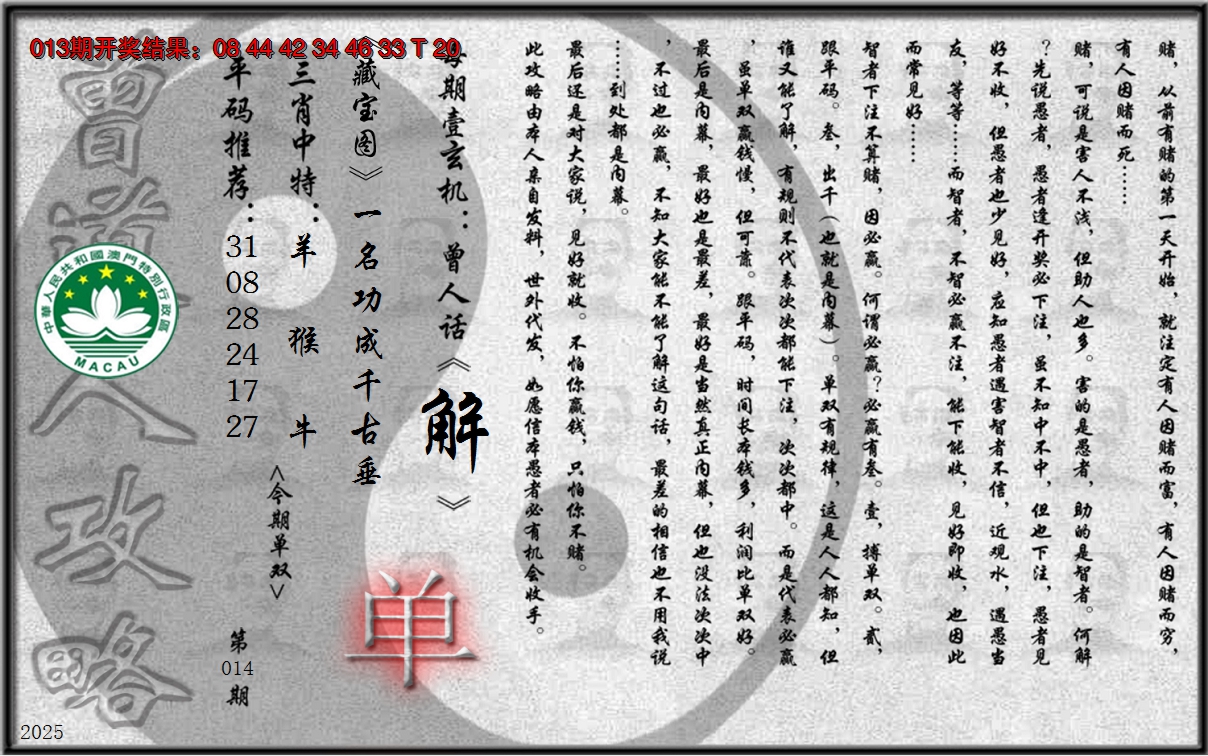 013期开奖结果：08 44 42 34 46 33 T 20
赌，从前有赌的第一天开始，就注定有人因赌而富，有人因赌而穷，
有人因赌而死……
赌，可说是害人不浅，但助人也多。害的是愚者，助的是智者。何解
？先说愚者，愚者逢开奖必下注，虽不知中不中，但也下注，愚者见
好不收，但愚者也少见好，应知愚者遇害智者不信，近观水，遇愚当
友，等等……而智者，不智必赢不注，能下能收，见好即收，也因此
而常见好……
智者下注不算赌，因必赢。何谓必赢？必赢有叁。壹，搏单双。贰，
跟平码。叁，出千（也就是内幕）。单双有规律，这是人人都知，但
谁又能了解，有规则不代表次次都能下注，次次都中。而是代表必赢
，虽单双赢钱慢，但可靠。跟平码，时间长本钱多，利润比单双好。
最后是内幕，最好也是最差，最好是当然真正内幕，但也没法次次中
，不过也必赢，不知大家能不能了解这句话，最差的相信也不用我说
……到处都是内幕。
最后还是对大家说，见好就收。不怕你赢钱，只怕你不赌。
此攻略由本人亲自发料，世外代发，如愿信本愚者必有机会收手。
每期壹玄机：曾人话《解》
《藏宝图》一名功成千古垂
三肖中特：羊 猴 牛
平码推荐：31 08 28 24 17 27
<今期单双>
单
第014期
曾道人攻略
中華人民共和國澳門特別行政區
MACAU
2025